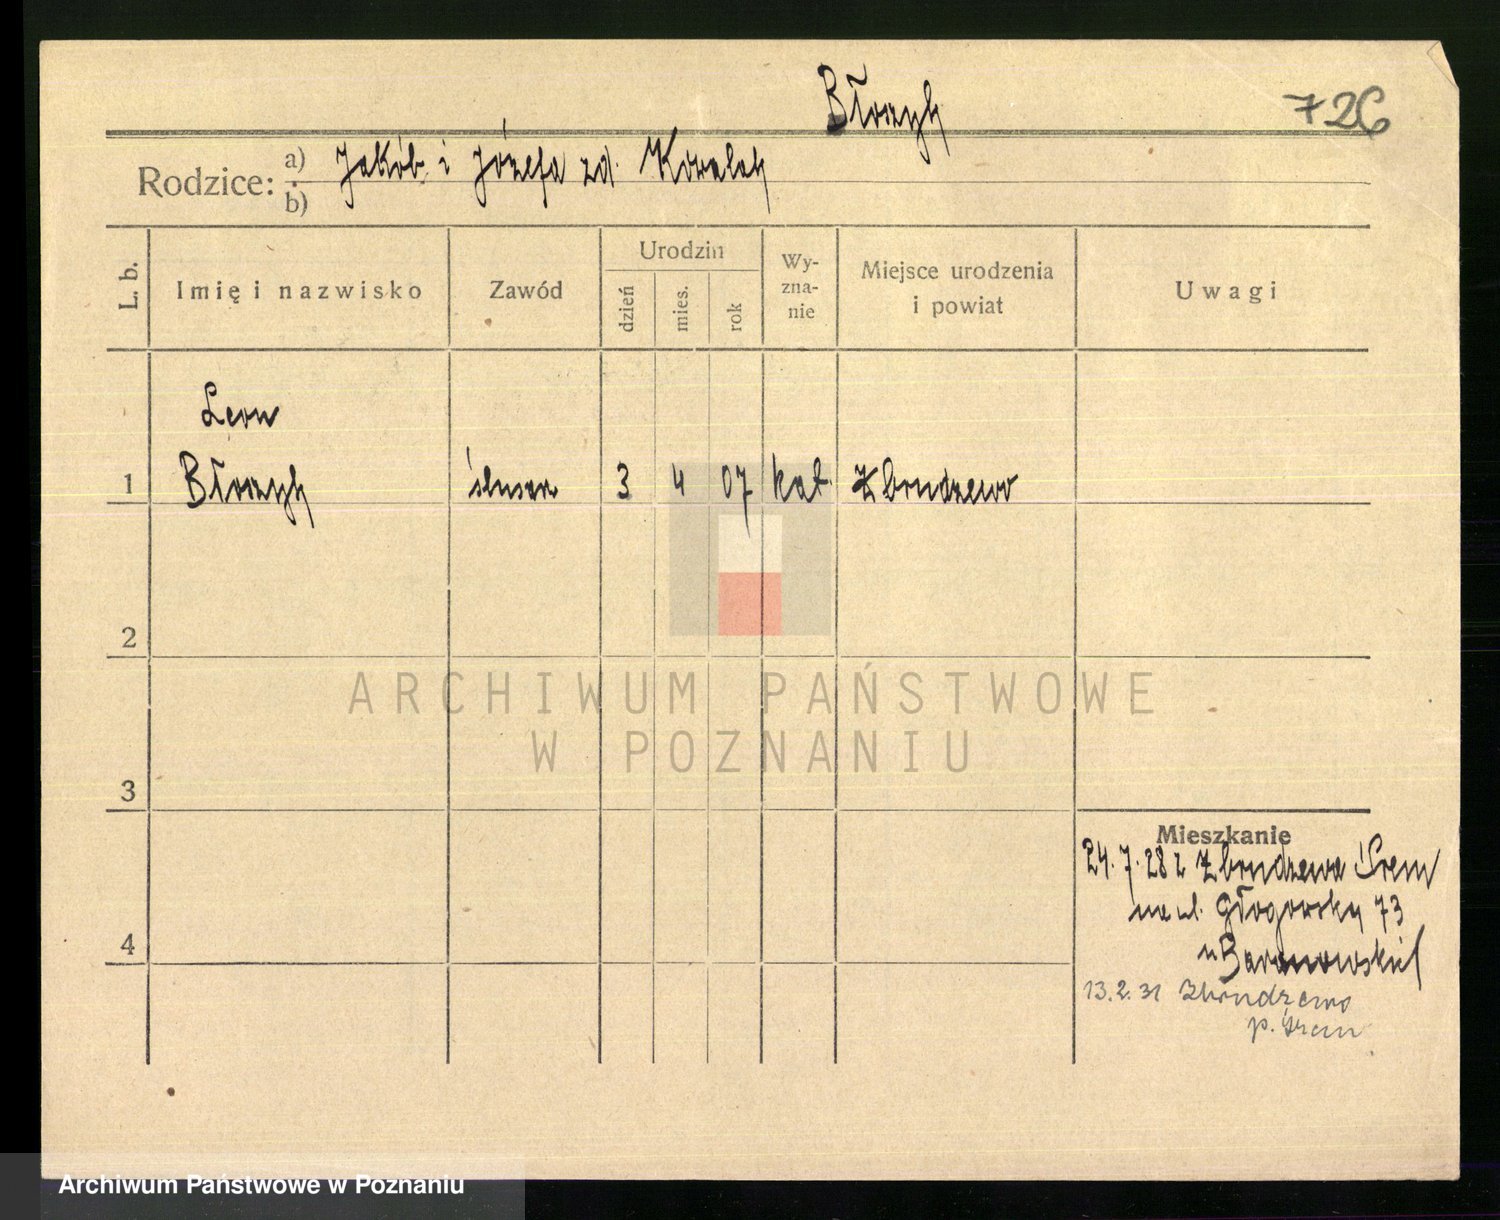 Błoszyk
726
Rodzice: a) Jakób i Józefa zd. Kowalak
b)
L. b.
Imię i nazwisko
Zawód
Urodzin
dzień
mies.
rok
Wy-
zna-
nie
Miejsce urodzenia
i powiat
Uwagi
Leon
1 Błoszyk ślusarz 3 4 07 kat. Zbrudzewo
2
ARCHIWUM PAŃSTWOWE
W POZNANIU
3
Mieszkanie
24.7.28 z Zbrudzewa Śrem
na ul. Głogowską 73
u Baranowskiej
4
13.2.31 Zbrudzewo
p. Śrem
Archiwum Państwowe w Poznaniu